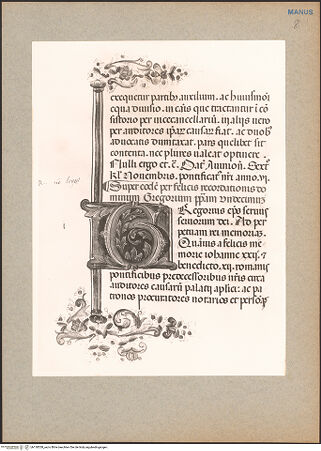 MANUS
8
exequetur partib9 auxilium. ac huiusmōi
equa diuisio. in cāis que tractantur i cō
sistorio per uicecancellariū. in alijs uero
per auditores ipar causar fiat. ac duob9
aduocatis dumtaxat. pars quelibet sit
contenta. nec plures ualeat optinere.
Nulli ergo et. c̄. Dat Auinion.
kł Nouembris. pontificat nr̄i anno. vi.
Super eccle per felicis recordationis do
minum Gregorium ppam Undecimum
Gregorius eps seruus
seruorum dei. Ad per
petuam rei memoriam.
Quamuis a felicis me
morie iohanne xxij. et
benedicto. xij. romanis
pontificibus predecessoribus nr̄is circa
auditores causarū palacij aplici: ac pa
tronos procuratores notarios et